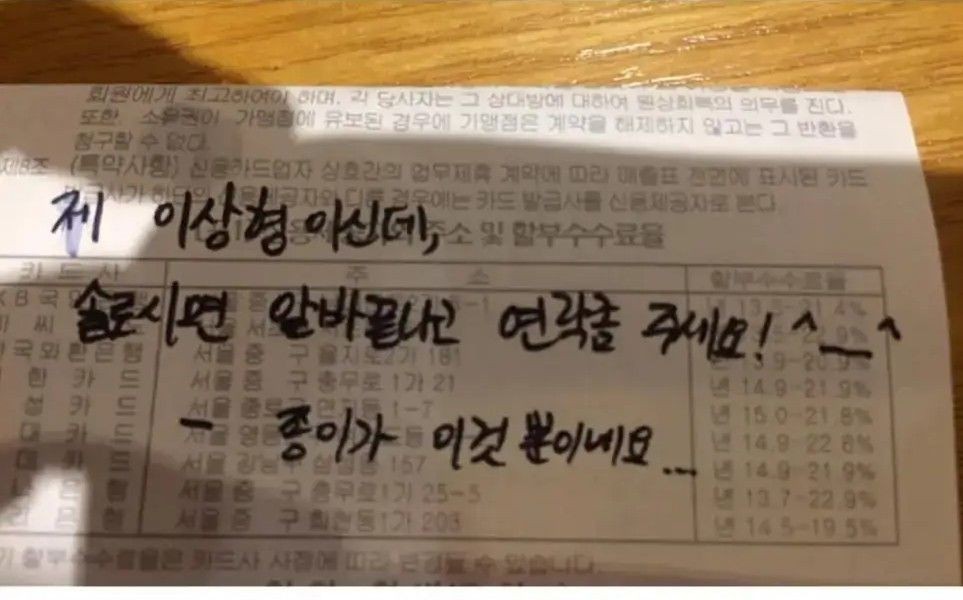 회원에게 최고하여야 하며, 각 당사자는 그 상대방에 대하여 원상회복의 의무를 진다.
또한, 소유권이 가맹점에 유보된 경우에 가맹점은 계약을 해제하지 않고는 그 반환을
청구할 수 없다.
제8조 (특약사항) 신용카드업자 상호간의 업무제휴 계약에 따라 매출표 전면에 표시된 카드
다른 경우에는 카드 발급사를 신용제공자로 본다.
제 이상형이신데,
주소 및 할부수수료율
카드사 주소 할부수수료율
솔로시면 알바끝나고 연락좀 주세요! ^__^
외환은행 서울 중 구 을지로2가 181
한 카 드 서울 중 구 충무로 1가 21 년 14.9-21.9%
카 드 서울 1-7 년 15.0-21.8%
- 종이가 이것 뿐이네요...
대 카 드 서울 년 14.9-22.6%
서울 강남구 157 년 14.9-21.9%
은 행 서울 중 구 충무로1가 25-5 년 13.7-22.9%
은 행 서울 중 구 회현동1가 203 년 14.5-19.5%
할부수수료율은 카드사 사정에 따라 변경될 수 있습니다.